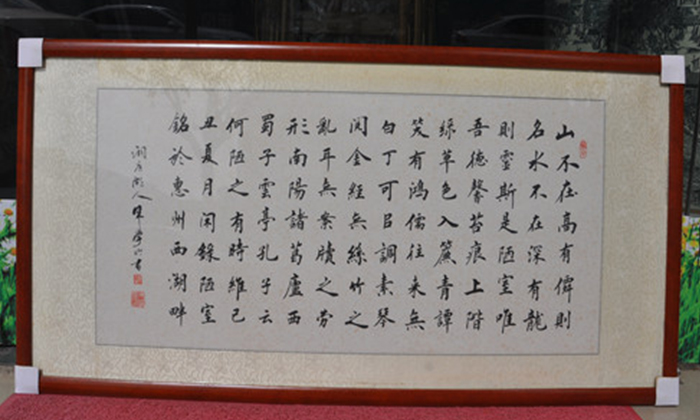 山不在高有僊則
名水不在深有龍
則霊斯是陋室唯
吾德馨苔痕上階
綠草色入簾青譚
笑有鴻儒往来無
白丁可㠯調素琴
閱金經無絲竹之
亂耳無案牘之劳
形南陽諸葛廬西
蜀子雲亭孔子云
何陋之有時維己
丑夏月闲錄陋室
銘於惠州西湖畔
人書